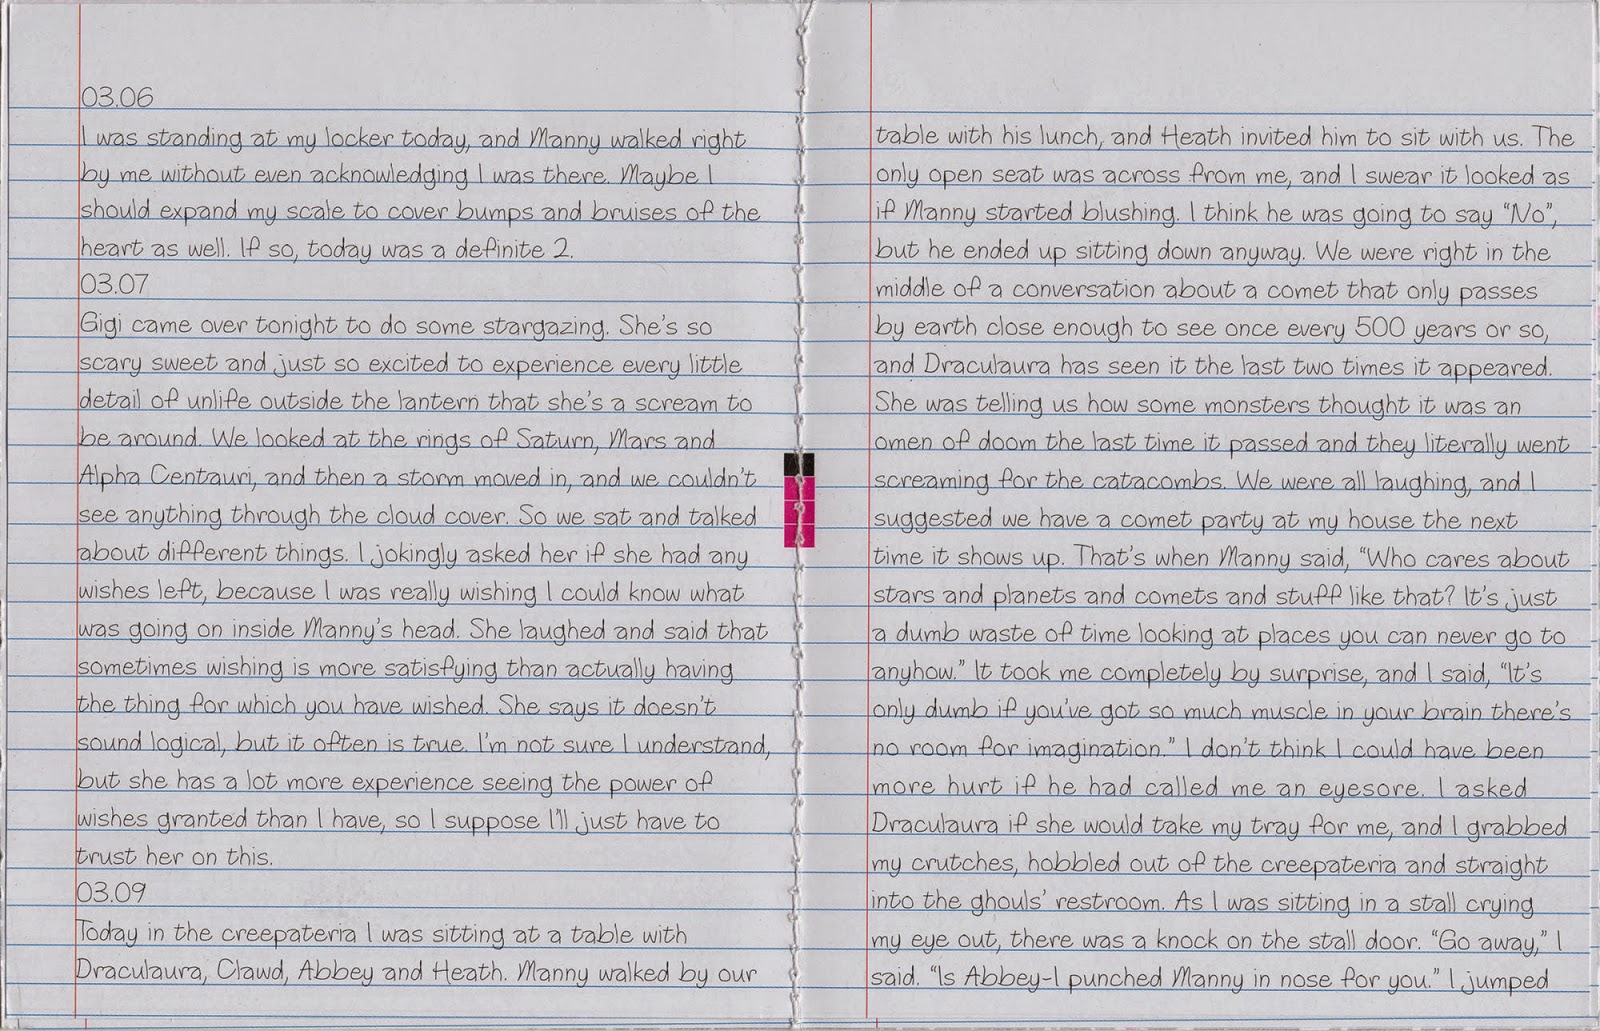 03.06
I was standing at my locker today, and Manny walked right
by me without even acknowledging I was there. Maybe I
should expand my scale to cover bumps and bruises of the
heart as well. If so, today was a definite 2.
03.07
Gigi came over tonight to do some stargazing. She's so
scary sweet and just so excited to experience every little
detail of unlife outside the lantern that she's a scream to
be around. We looked at the rings of Saturn, Mars and
Alpha Centauri, and then a storm moved in, and we couldn't
see anything through the cloud cover. So we sat and talked
about different things. I jokingly asked her if she had any
wishes left, because I was really wishing I could know what
was going on inside Manny's head. She laughed and said that
sometimes wishing is more satisfying than actually having
the thing for which you have wished. She says it doesn't
sound logical, but it often is true. I'm not sure I understand,
but she has a lot more experience seeing the power of
wishes granted than I have, so I suppose I'll just have to
trust her on this.
03.09
Today in the creepateria I was sitting at a table with
Draculaura, Clawd, Abbey and Heath. Manny walked by our
table with his lunch, and Heath invited him to sit with us. The
only open seat was across from me, and I swear it looked as
if Manny started blushing. I think he was going to say “No”,
but he ended up sitting down anyway. We were right in the
middle of a conversation about a comet that only passes
by earth close enough to see once every 500 years or so,
and Draculaura has seen it the last two times it appeared.
She was telling us how some monsters thought it was an
omen of doom the last time it passed and they literally went
screaming for the catacombs. We were all laughing, and I
suggested we have a comet party at my house the next
time it shows up. That's when Manny said, “Who cares about
stars and planets and comets and stuff like that? It's just
a dumb waste of time looking at places you can never go to
anyhow.” It took me completely by surprise, and I said, “It's
only dumb if you've got so much muscle in your brain there's
no room for imagination.” I don't think I could have been
more hurt if he had called me an eyesore. I asked
Draculaura if she would take my tray for me, and I grabbed
my crutches, hobbled out of the creepateria and straight
into the ghouls' restroom. As I was sitting in a stall crying
my eye out, there was a knock on the stall door. “Go away,” I
said. “Is Abbey-I punched Manny in nose for you.” I jumped